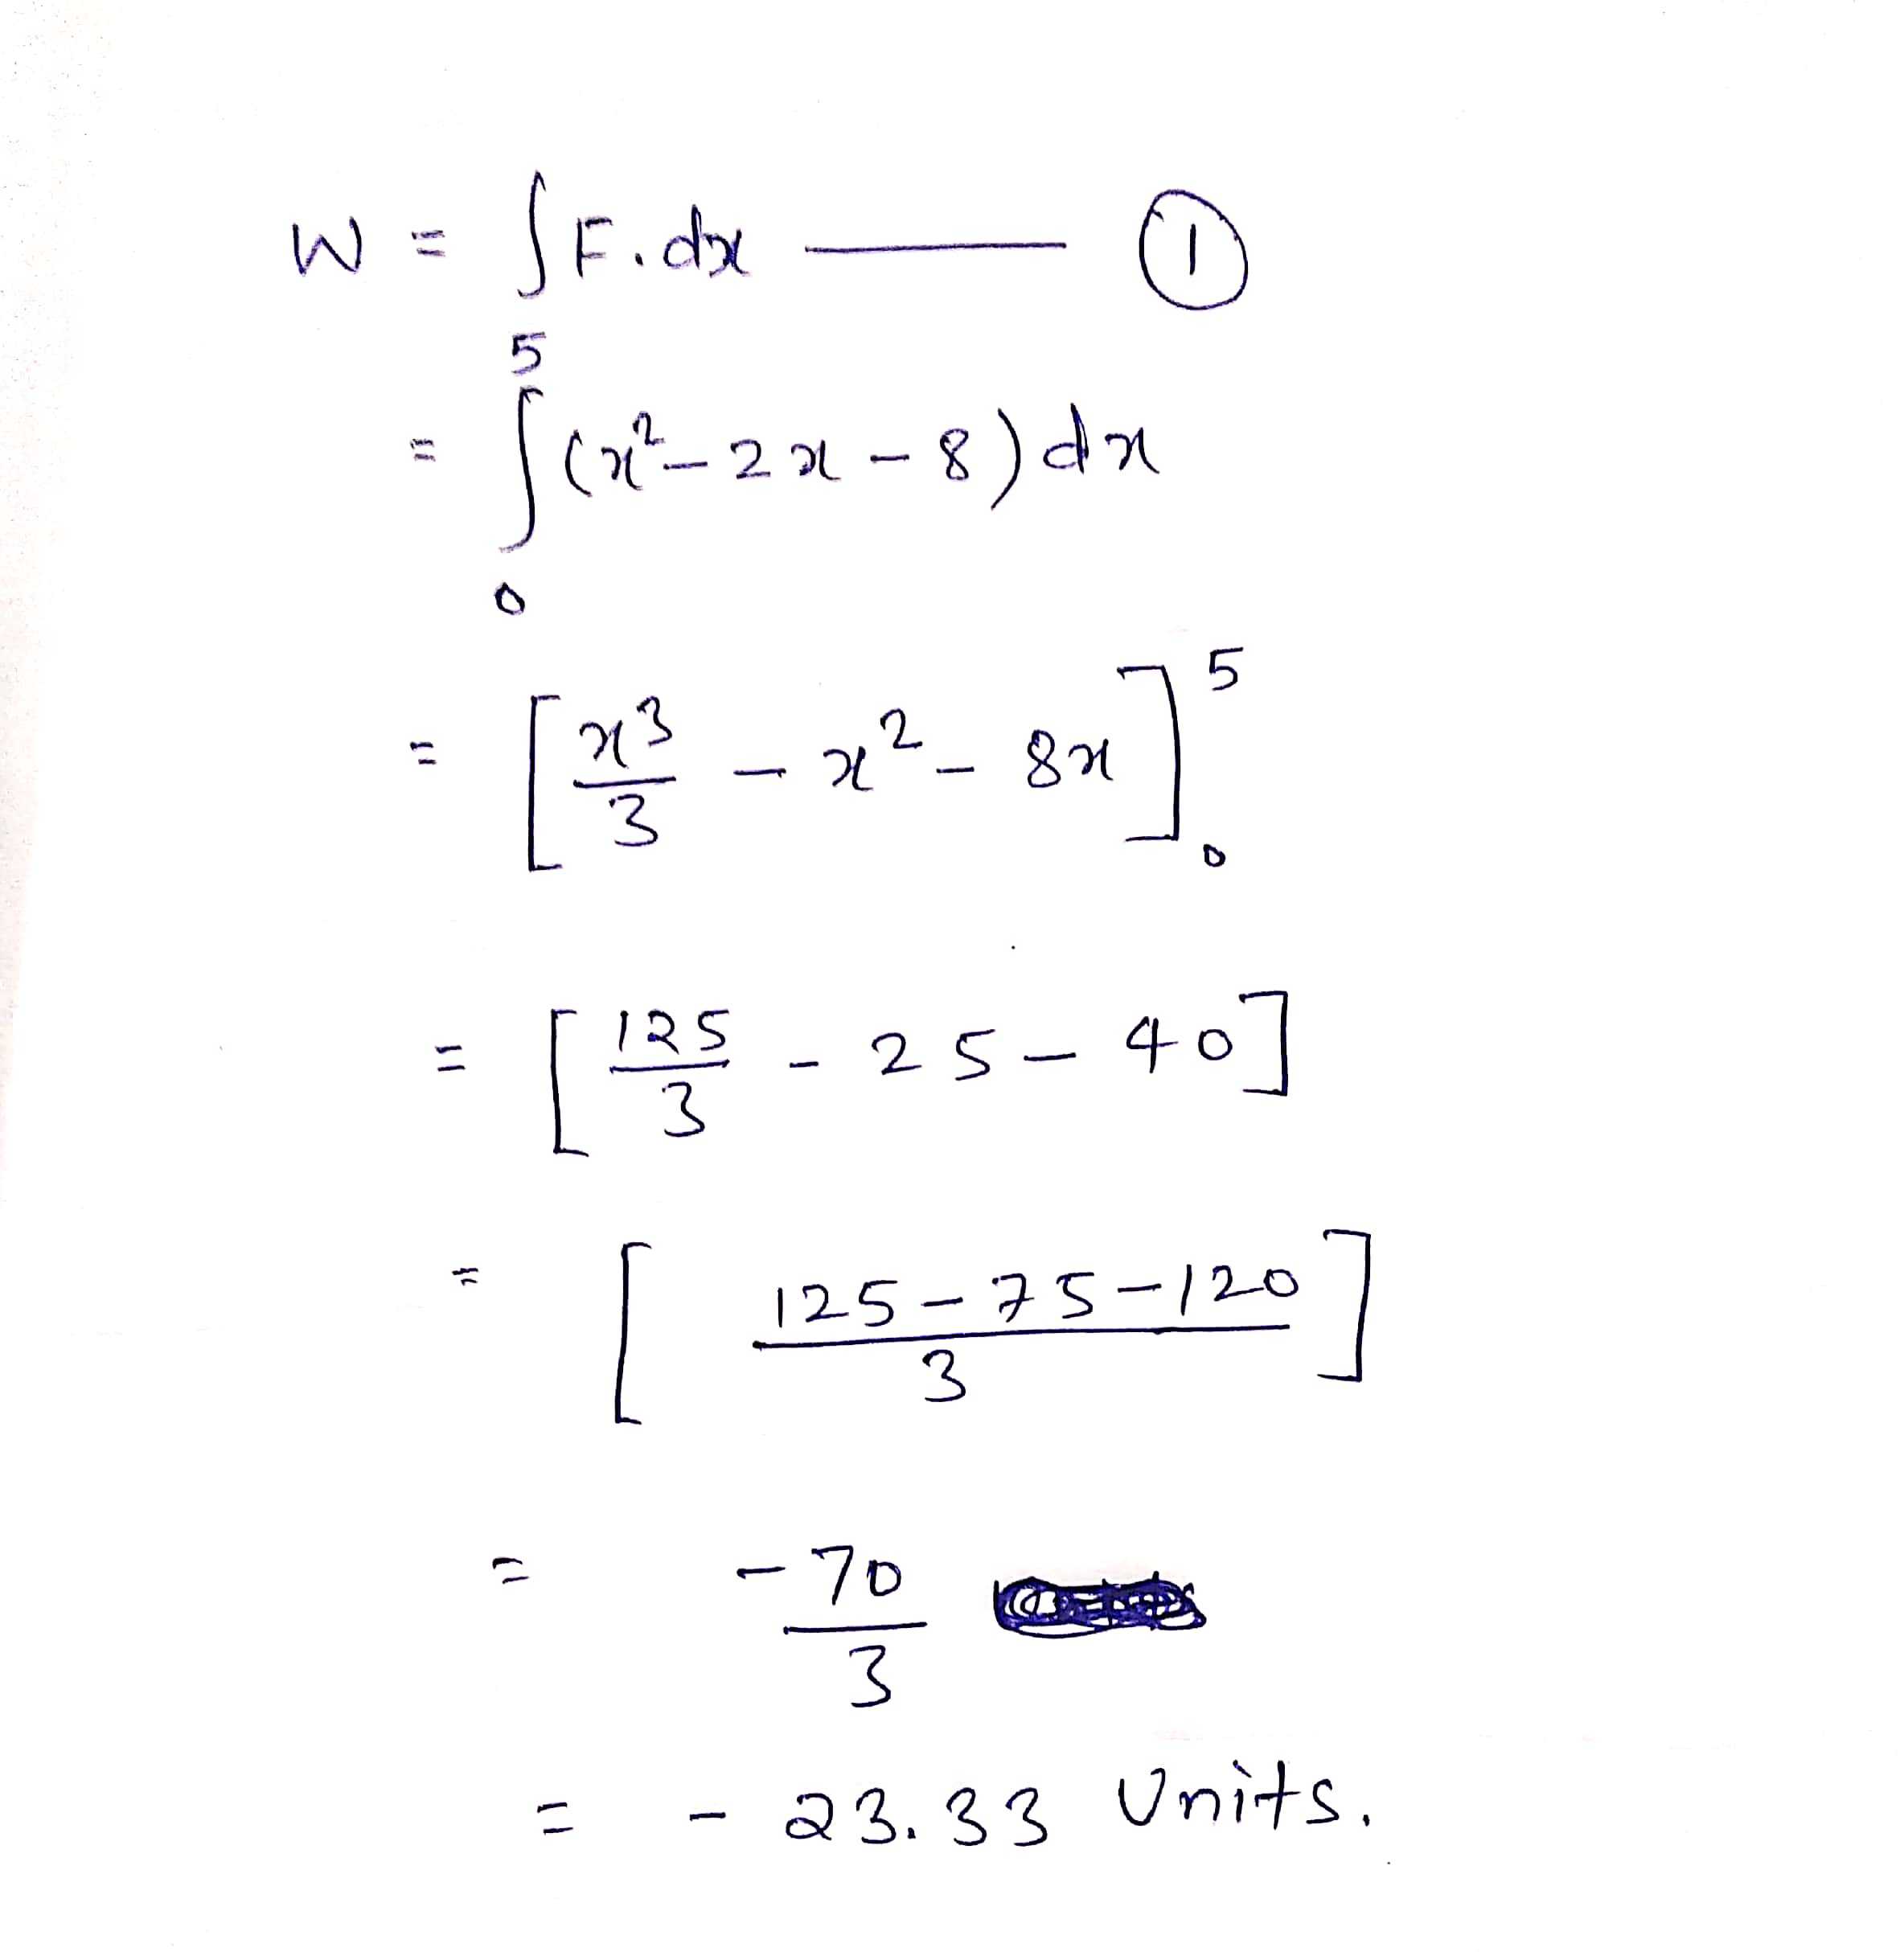 W = ∫F.dx — ①
= ∫₀⁵ (x²-2x-8)dx
= [x³/3 - x² - 8x]₀⁵
= [125/3 - 25 - 40]
= [(125-75-120)/3]
= -70/3
= -23.33 Units.